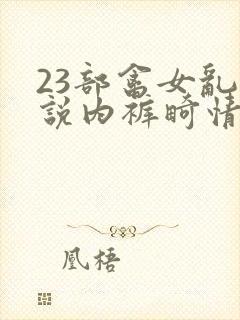 23部畲女乱
說内裤畸情
凰梧